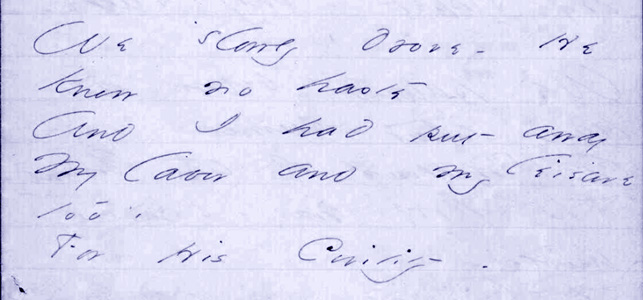 We slowly drove - He
knew no haste
And I had put away
My labor and my leisure
too,
For His Civility -